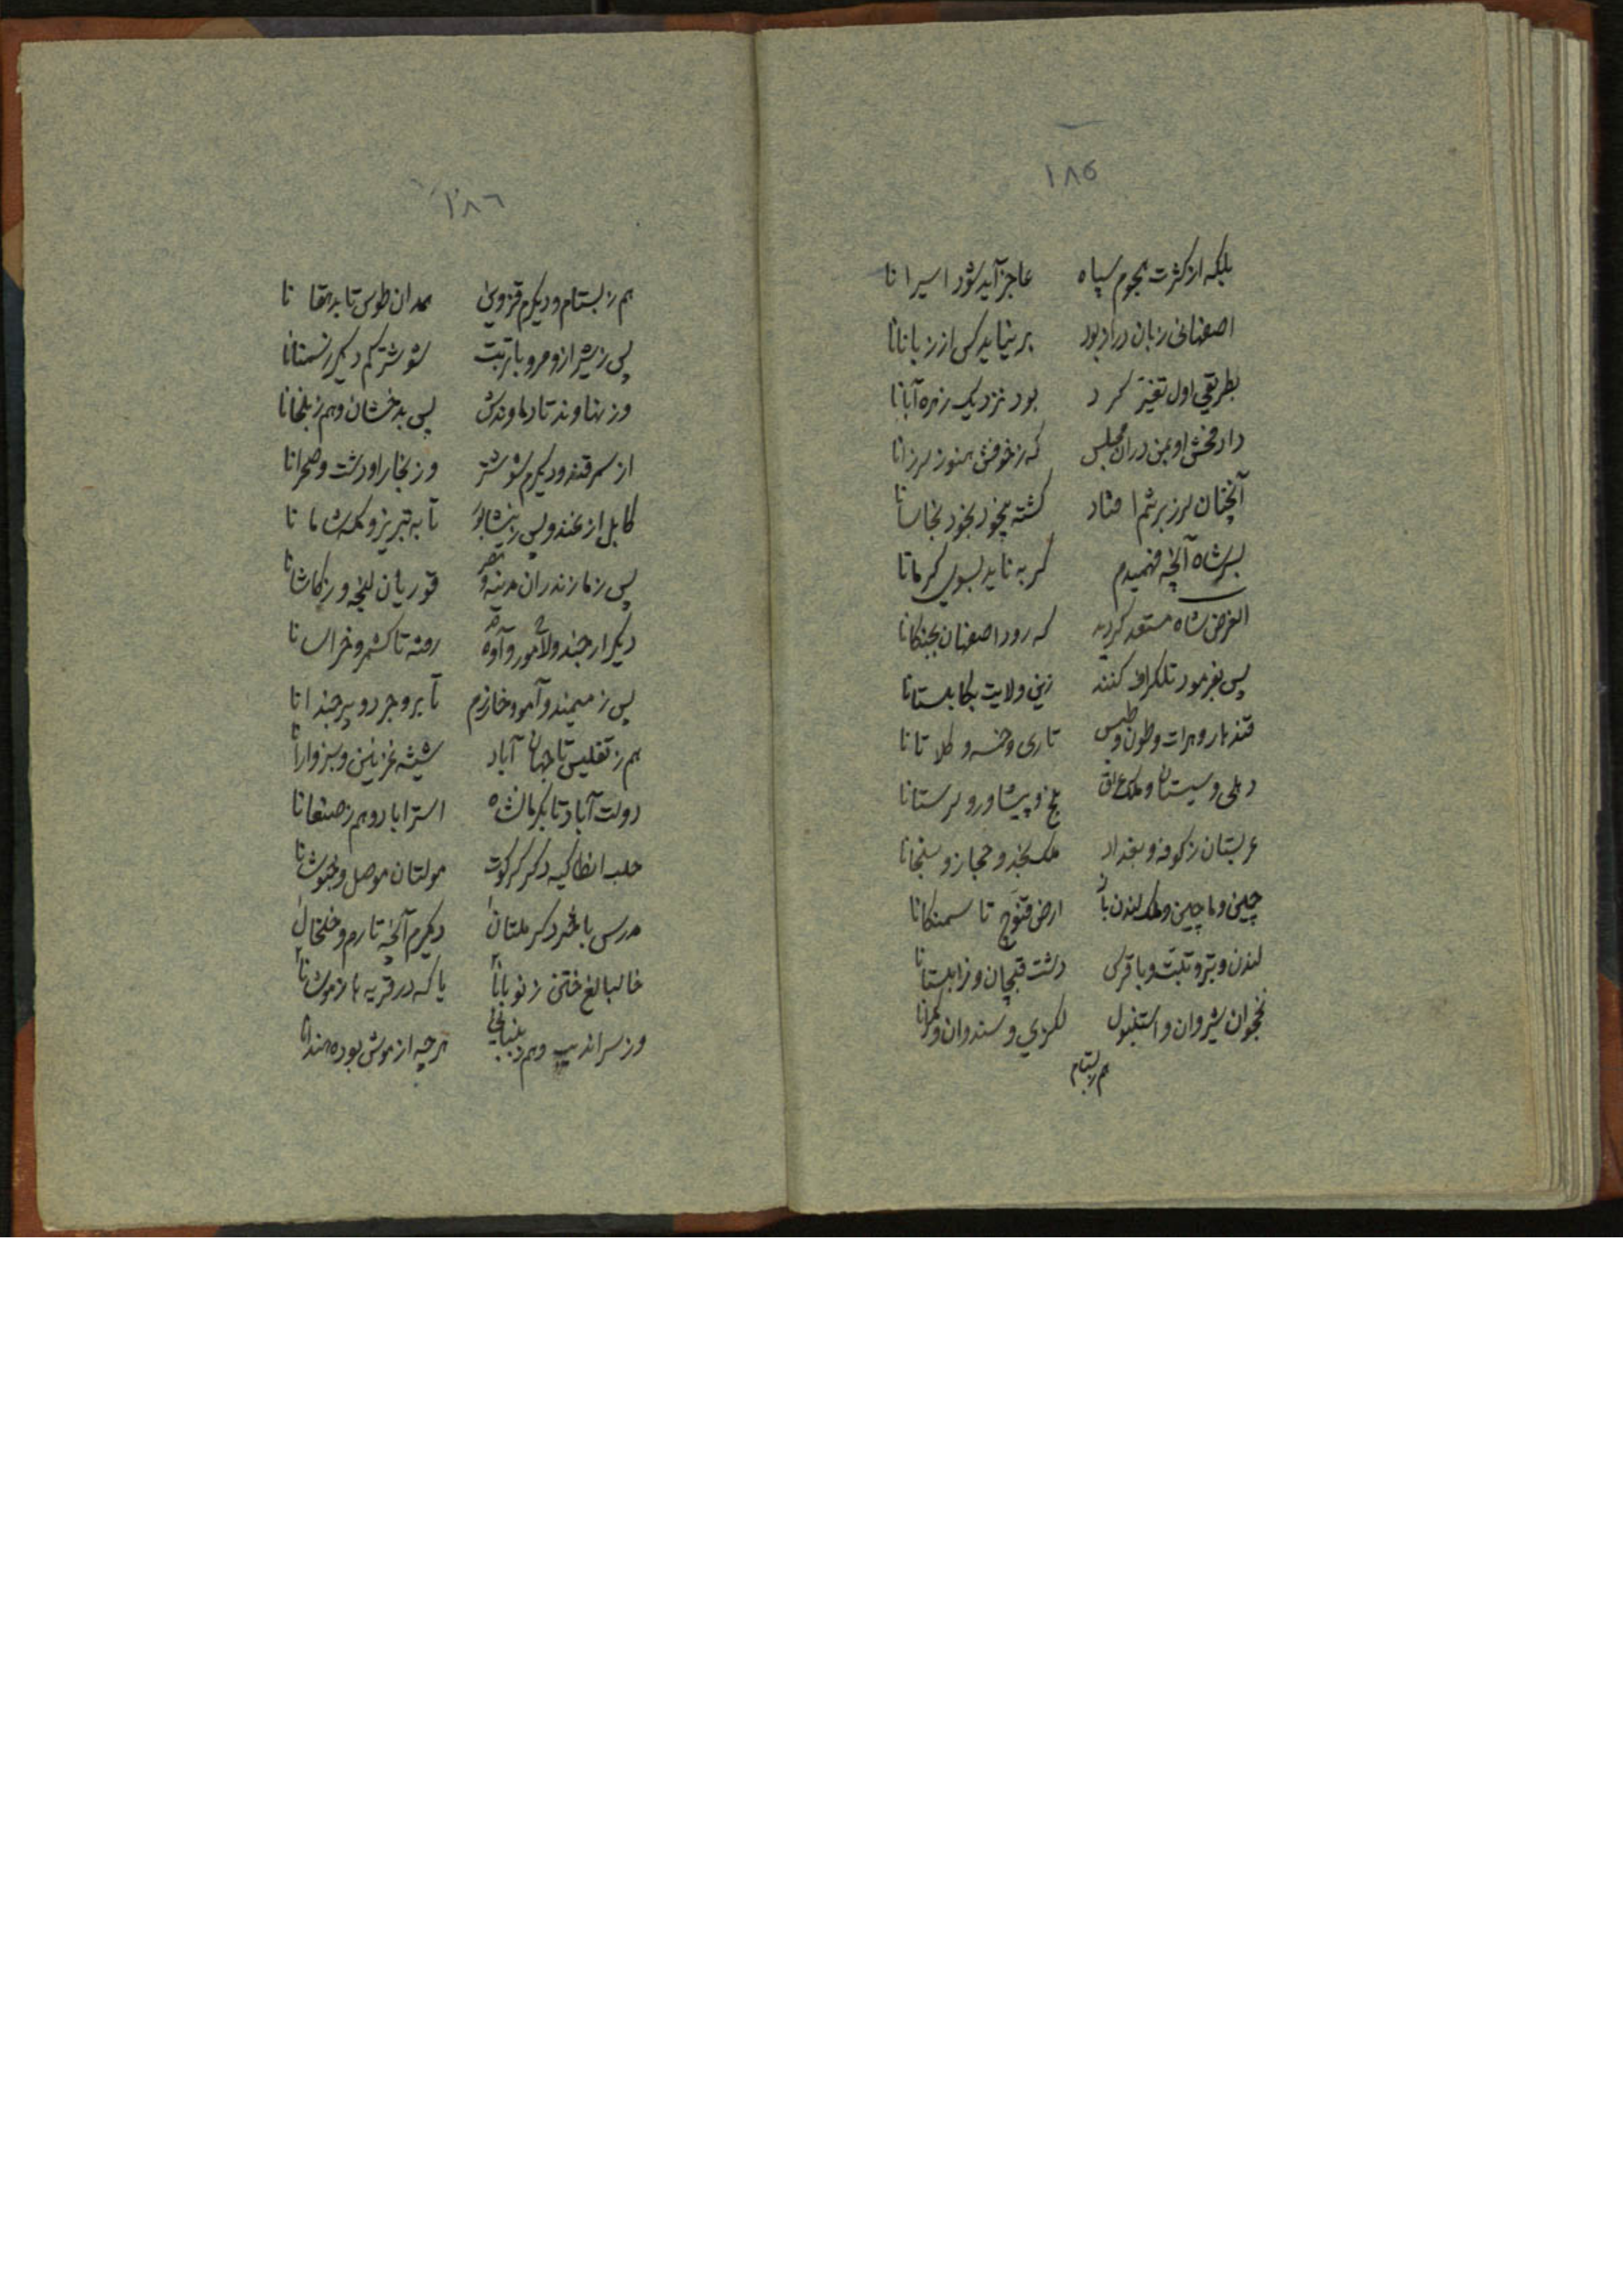 ۱۸۵
بلکه از کثرت هجوم سپاه عاجز آید شود اسیرانا
اصفهانی زبان دراز بود بر نیاید کس از زبانانا
بطریقی اول تغیّر کرد بود نزدیک زهره آبانا
داد فحش او بمن دران مجلس که ز خوفش هنوز لرزانا
آنچنان لرز بر تنم افتاد گشته میخود بخود بخاسانا
بر شاه آنچه فهمیدم گربه ناید بسوی کرمانا
الغرض شاه مستعد گردید که رود اصفهان بجنگانا
پس بفرمود تلگراف کنند زین ولایت بکابلستانا
قندهار و هرات و طون و طبس تاری و خسه و کلاتانا
دهلی و سیستان و ملک عراق بلخ و پیشاور و لرستانا
عربستان ز کوفه و بغداد ملک نجد و حجاز و سنجانا
چین و ماچین و ملک لندن باز ارض قنوج تا سمنگانا
لندن و بتر و تبت و باقرس دشت قبچان و زابلستانا
نخجوان شیروان و استنبول لکزی و سندوان و
هم ز بستام
۱۸۶
هم ز بستام و دیگرم قزوین همدان طوس تا بدهقانا
پس ز شیراز و مرو با تربت شوشترکم دیگر
وز نهاوند تا دماوندش پس بدخشان و هم ز بلخانا
از سمرقند و دیگرم شوشتر وز بخارا و دشت و صحرانا
کابل از غند و پس ز نیشابور تا به تبریز و ملک شامانا
پس ز مازندران مدینه و مصر قوریان لنجه و ز کاشانا
دیگر ارجند و لاهور و آوه رفته تا کشمر و خراسانا
پس ز میمند و آمو و خازرم تا بروجرد و بیرجندانا
هم ز تفلیس تا جهان آباد شیشه غزنین و سبزوارانا
دولت آباد تا بکرمانشاه استراباد و هم ز صنعانا
حلب انطاکیه دگر کرکوت مولتان موصل و
مدرس با دگر ملتان دیگرم آنچه تارم و خلخال
خالبالغ ختن ز نوبانا یا که در قریه ها ز موشانا
وز سراندیب و هم هرچه از موش بوده هندانا